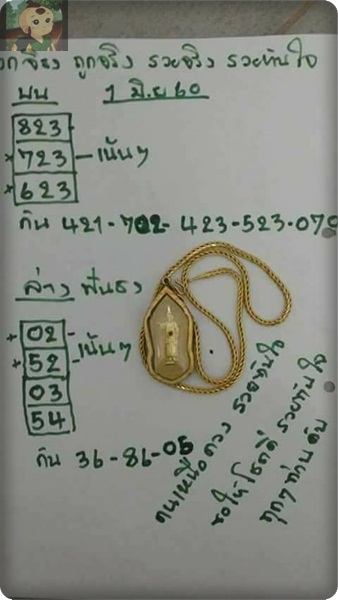 ถูกจริง รวยจริง รวยทันใจ
บน 1 มิ.ย 60
823
× 723 - เน้นๆ
× 623
กัน 421-702-423-523-070
ล่าง ฟันธง
+ 02 -
+ 52 - เน้นๆ
03
54
กัน 36-86-05
คนเหนือดวง รวยทันใจ
ขอให้โชคดี รวยทันใจ
ทุกๆท่านครับ